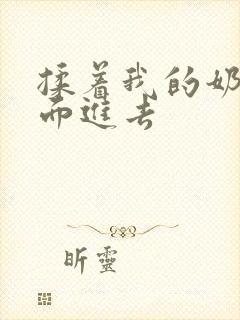 揉着我的奶
而進去
昕靈